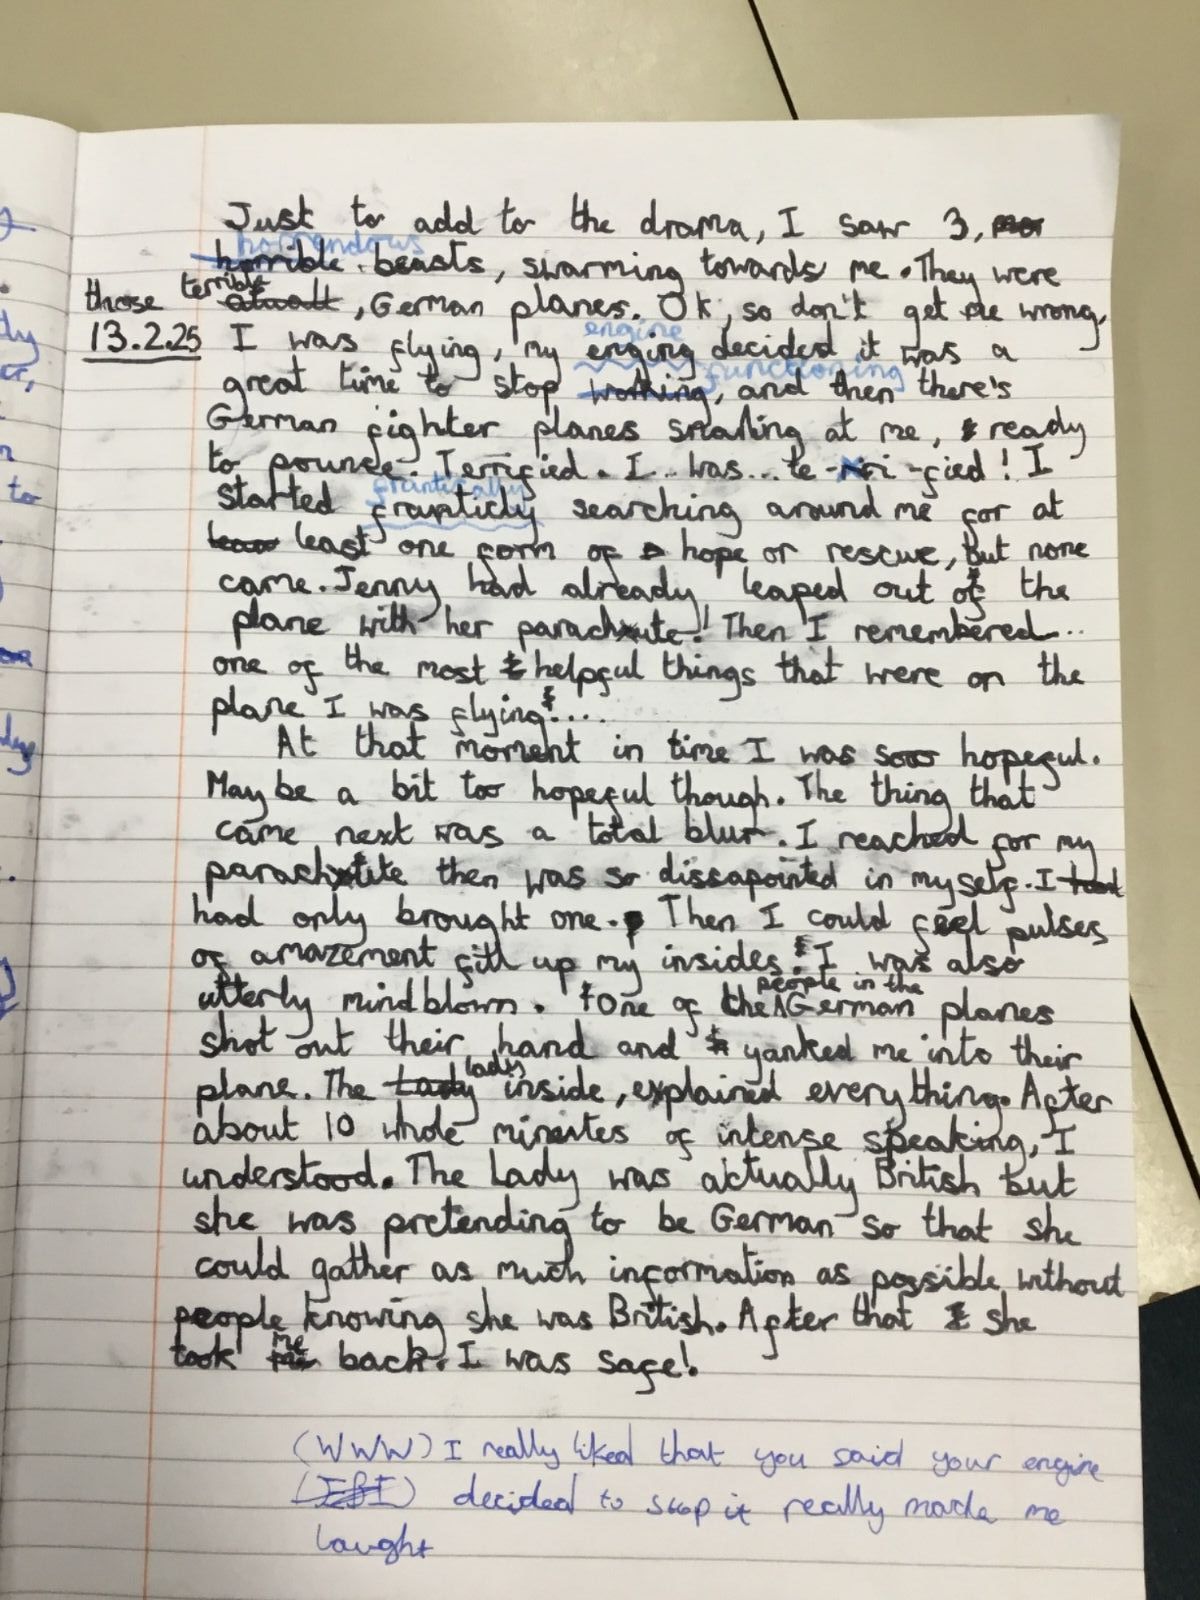 Just to add to the drama, I saw 3,
horrendous
horrible beasts, swarming towards me. They were
those terrible , German planes. Ok, so don't get me wrong,
13.2.25 I was flying, my enging decided it was a
engine
great time to stop working, and then there's
functioning
German fighter planes snarling at me, ready
to pounce. Terrified. I... was... te-rri-fied! I
started frantically searching around me for at
frantically
least one form of hope or rescue, but none
came. Jenny had already leaped out of the
plane with her parachute! Then I remembered...
one of the most helpful things that were on the
plane I was flying!...
At that moment in time I was soo hopeful.
Maybe a bit too hopeful though. The thing that
came next was a total blur. I reached for my
parachute then was so dissapointed in myself. I
had only brought one. Then I could feel pulses
of amazement fill up my insides! I was also
utterly mindblown. One of the German planes
people in the
shot out their hand and yanked me into their
plane. The Lady inside, explained everything. After
lady
about 10 whole minutes of intense speaking, I
understood. The Lady was actually British but
she was pretending to be German so that she
could gather as much information as possible without
people knowing she was British. After that she
took me back. I was safe!
(WWW) I really liked that you said your engine
(EBI) decided to stop it really made me
laught